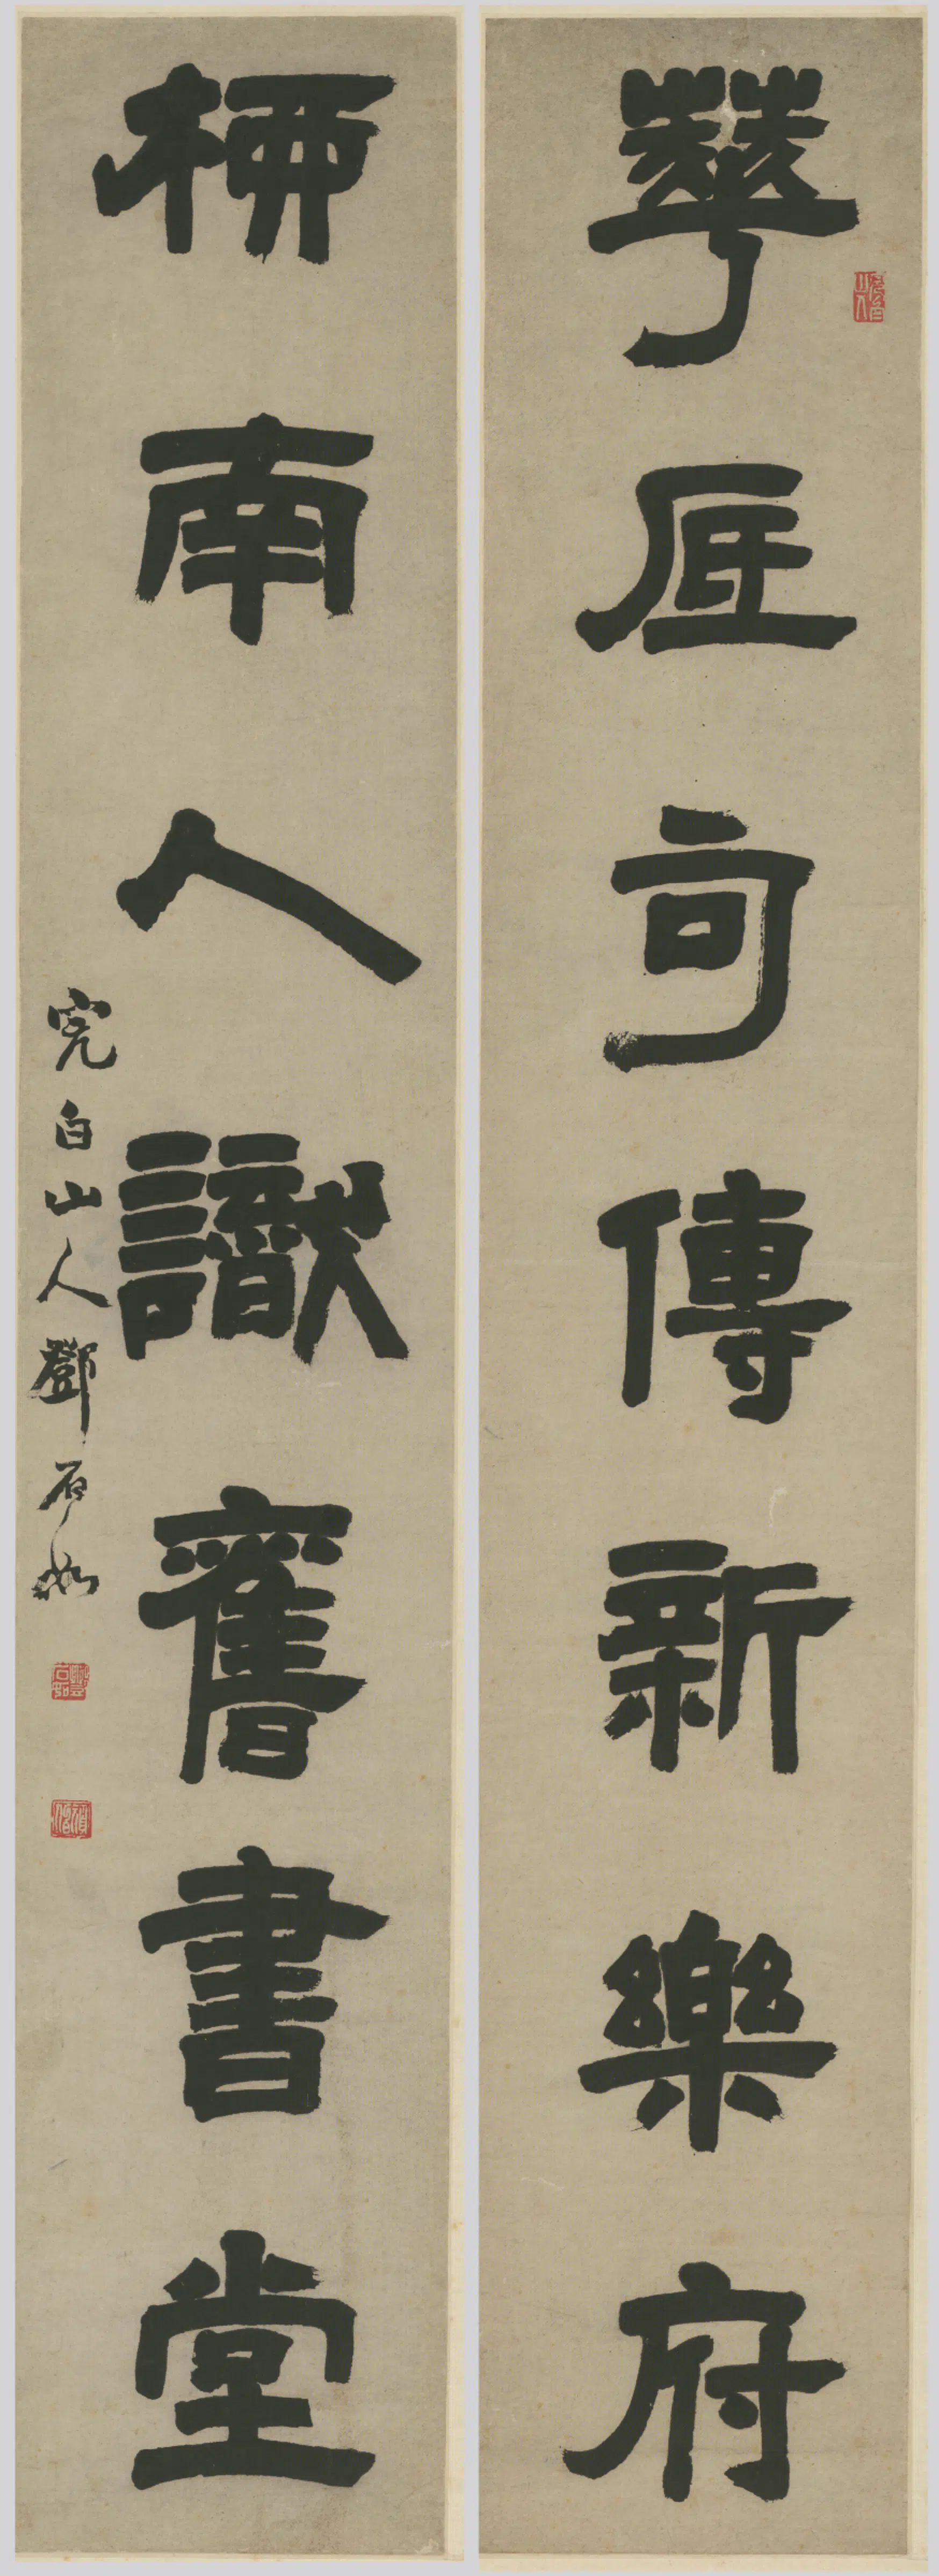 華厓句傳新樂府
柳南人識舊書堂
完白山人鄧石如